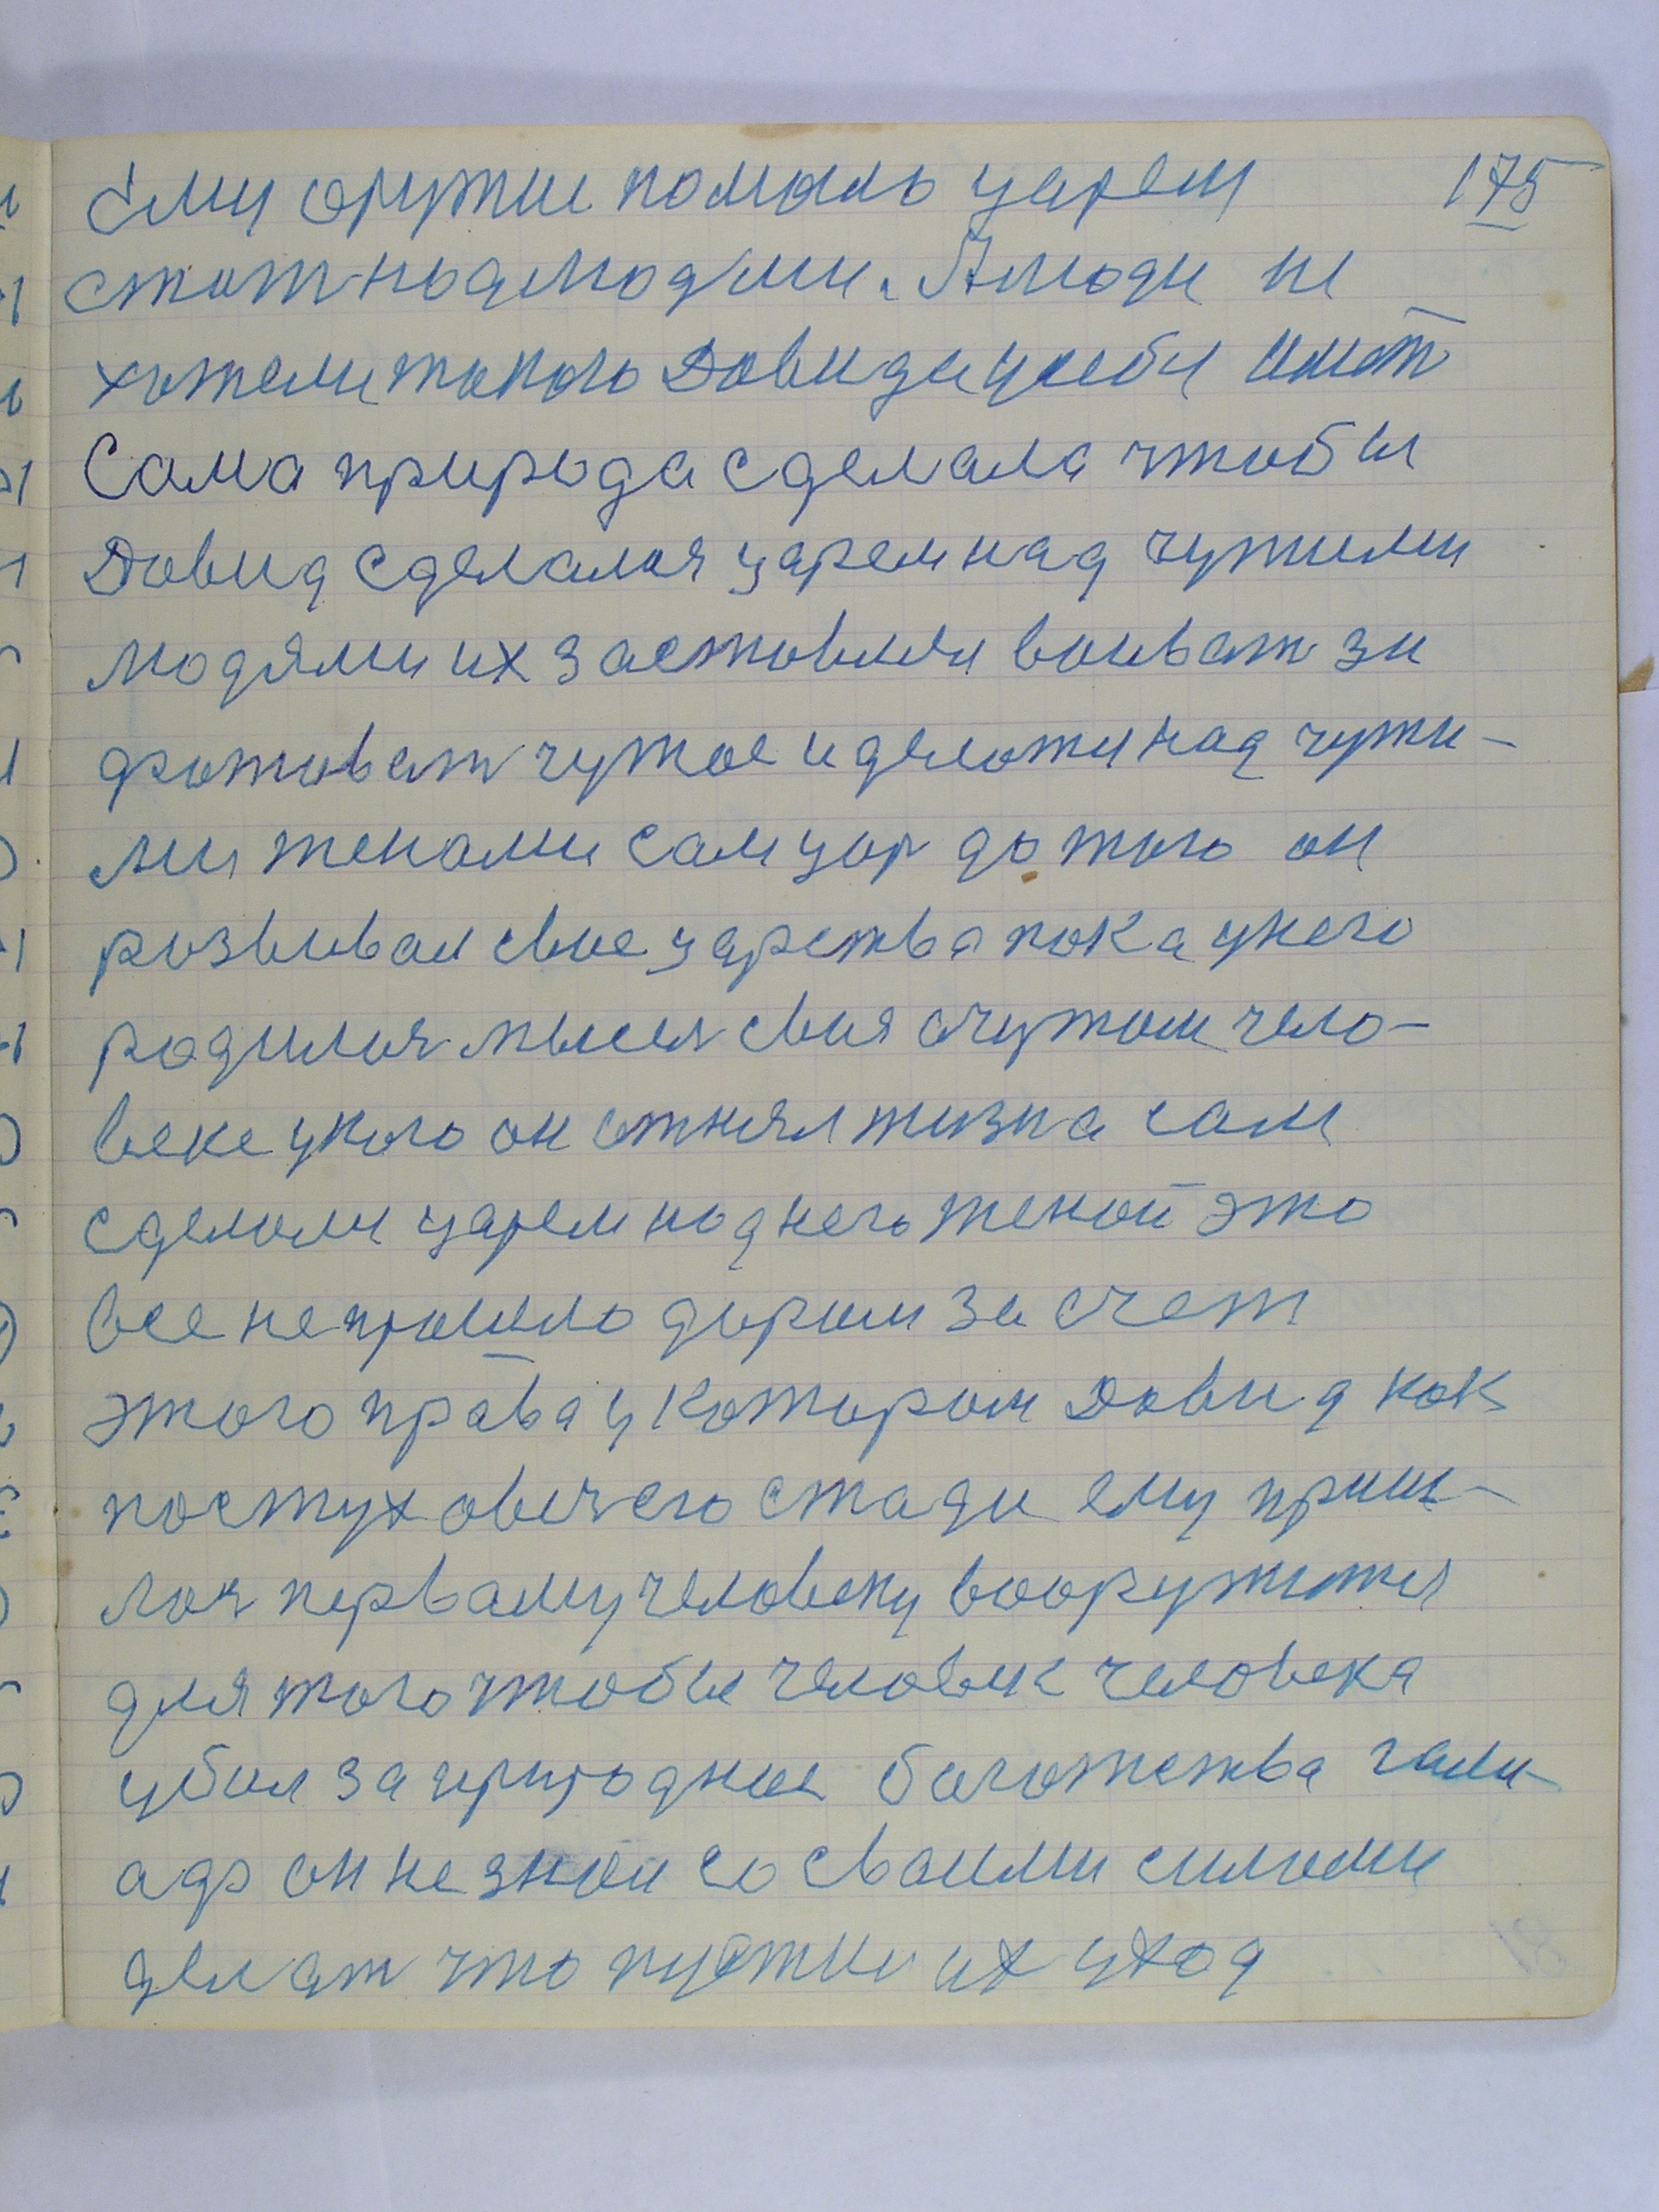 Ему оружие помагло царем 175
стат над людями. А люди не
хотели такого Довида у себя имет
Сама природа сделала чтобы
Довид сделался царем над чужими
людями их заставляли воеват за
хватоват чужое и делатя над чужи-
ми женами сам цар до того он
розвивал свое царства пока у него
родился мысел своя о чужом чело-
веке у кого он отнял жизн а сам
сделался царем над него женой это
все не прошло даром за счет
этого права у котором Довид как
постух овечего стада ему приш-
лося первому человеку вооружится
для того чтобы человек человека
убил за природное багожества гали-
адр он не знал со своими силами
делат что пустил их уход